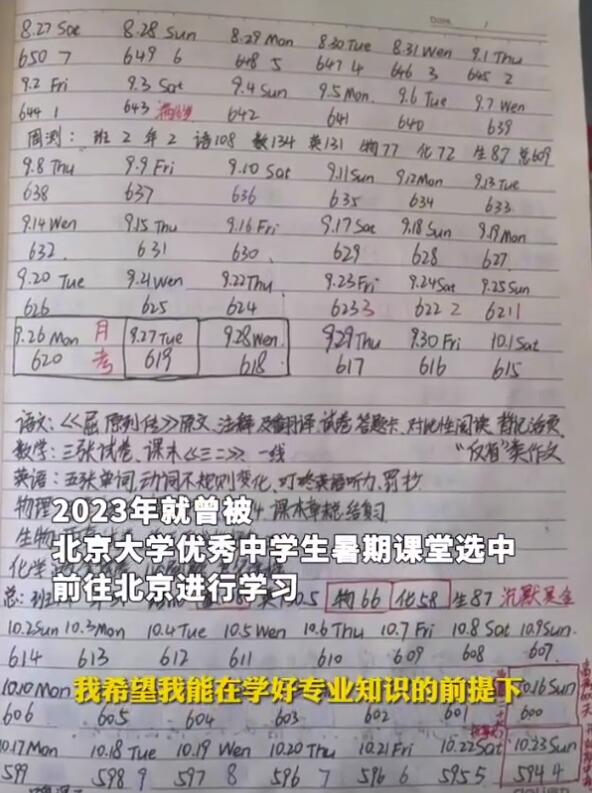 Date
8.27 Sat 8.28 Sun 8.29 Mon 8.30 Tue 8.31 Wen 9.1 Thu
650 7 649 6 648 5 647 4 646 3 645 2
9.2 Fri 9.3 Sat 9.4 Sun 9.5 Mon. 9.6 Tue 9.7 Wen
644 1 643 642 641 640 639
周测: 班2 年2 语108 数134 英131 物77 化72 生87 总609
9.8 Thu 9.9 Fri 9.10 Sat 9.11 Sun 9.12 Mon 9.13 Tue
638 637 636 635 634 633
9.14 Wen 9.15 Thu 9.16 Fri 9.17 Sat 9.18 Sun 9.19 Mon
632 631 630 629 628 627
9.20 Tue 9.21 Wen 9.22 Thu 9.23 Fri 9.24 Sat 9.25 Sun
626 625 624 623 3 622 2 621 1
9.26 Mon 月考 9.27 Tue 9.28 Wen 9.29 Thu 9.30 Fri 10.1 Sat
620 619 618 617 616 615
语文:《屈原列传》原文、注释及翻译、试卷答题卡、对比性阅读、背记活页
数学:三张试卷、课本《三二》一线 “仅有”类作文
英语:五张单词、动词不规则变化、叮咚英语听力、罚抄
物理 课本章总结复习
生物
化学
2023年就曾被
北京大学优秀中学生暑期课堂选中
前往北京进行学习
总: 物66 化58 生87 沉默是金
10.2 Sun 10.3 Mon 10.4 Tue 10.5 Wen 10.6 Thu 10.7 Fri 10.8 Sat 10.9 Sun
614 613 612 611 610 609 608 607
10.10 Mon 10.16 Sun
我希望我能在学好专业知识的前提下
606 605 604 603 602 601 600
10.17 Mon 10.18 Tue 10.19 Wen 10.20 Thu 10.21 Fri 10.22 Sat 10.23 Sun
599 598 9 597 8 596 7 596 6 595 5 594 4